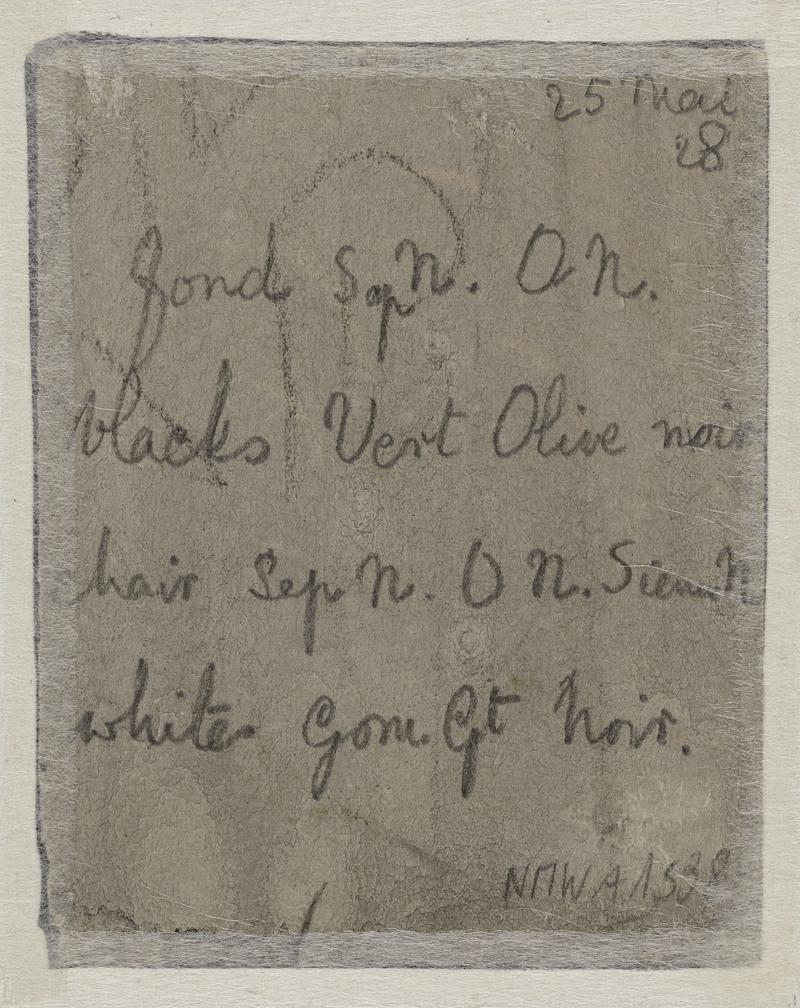 25 Mai
28
fond Sep N. O N.
blacks Vert Olive noir
hair Sep N. O N. Sienn N
whites Gom. Gt Noir.
NMW A 1538